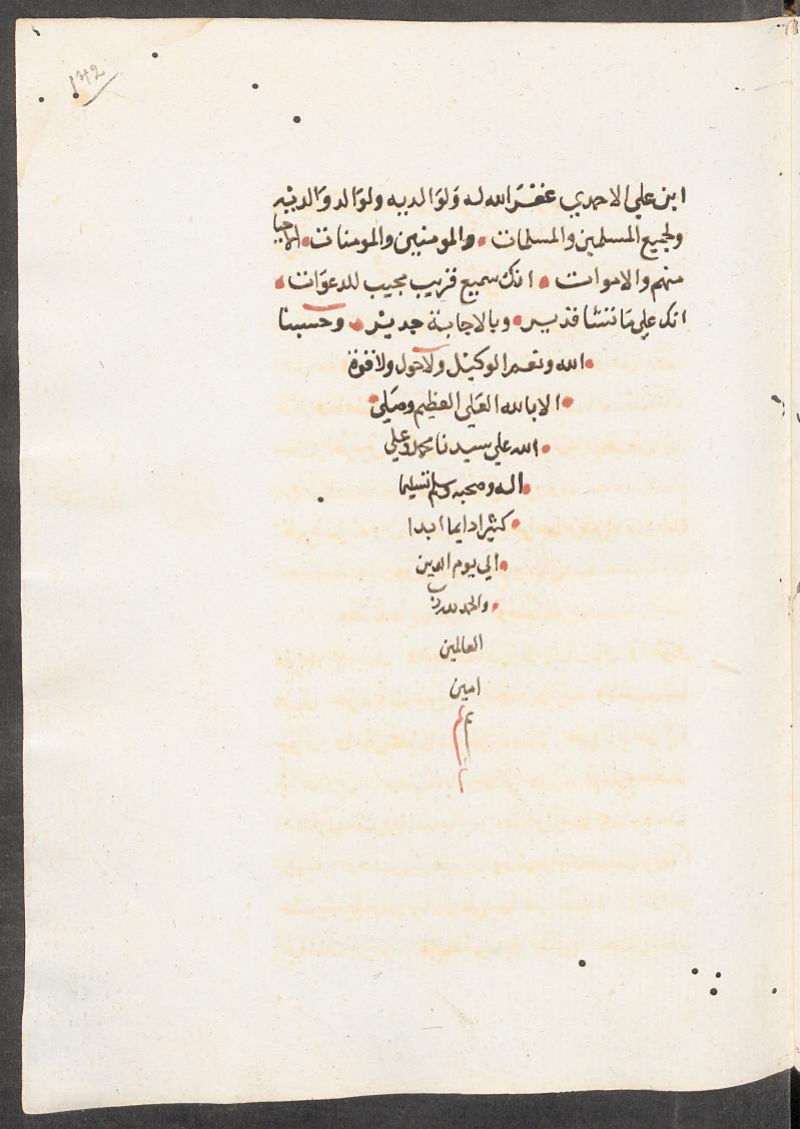 142
ابن علي الاحمدي غفر الله له ولوالديه ولوالد والديه
ولجميع المسلمين والمسلمات • والمومنين والمومنات • الاحيا
منهم والاموات • انك سميع قريب مجيب للدعوات •
انك علي ما تشا قدير • وبالاجابة جدير • وحسبنا
• الله ونعم الوكيل ولاحول ولاقوة
• الا بالله العلي العظيم وصلي •
• الله علي سيدنا محمد وعلي
• اله وصحبه وسلم تسليما
• كثيرا دايما ابدا
• الي يوم الدين
• والحمد لله رب
العالمين
امين